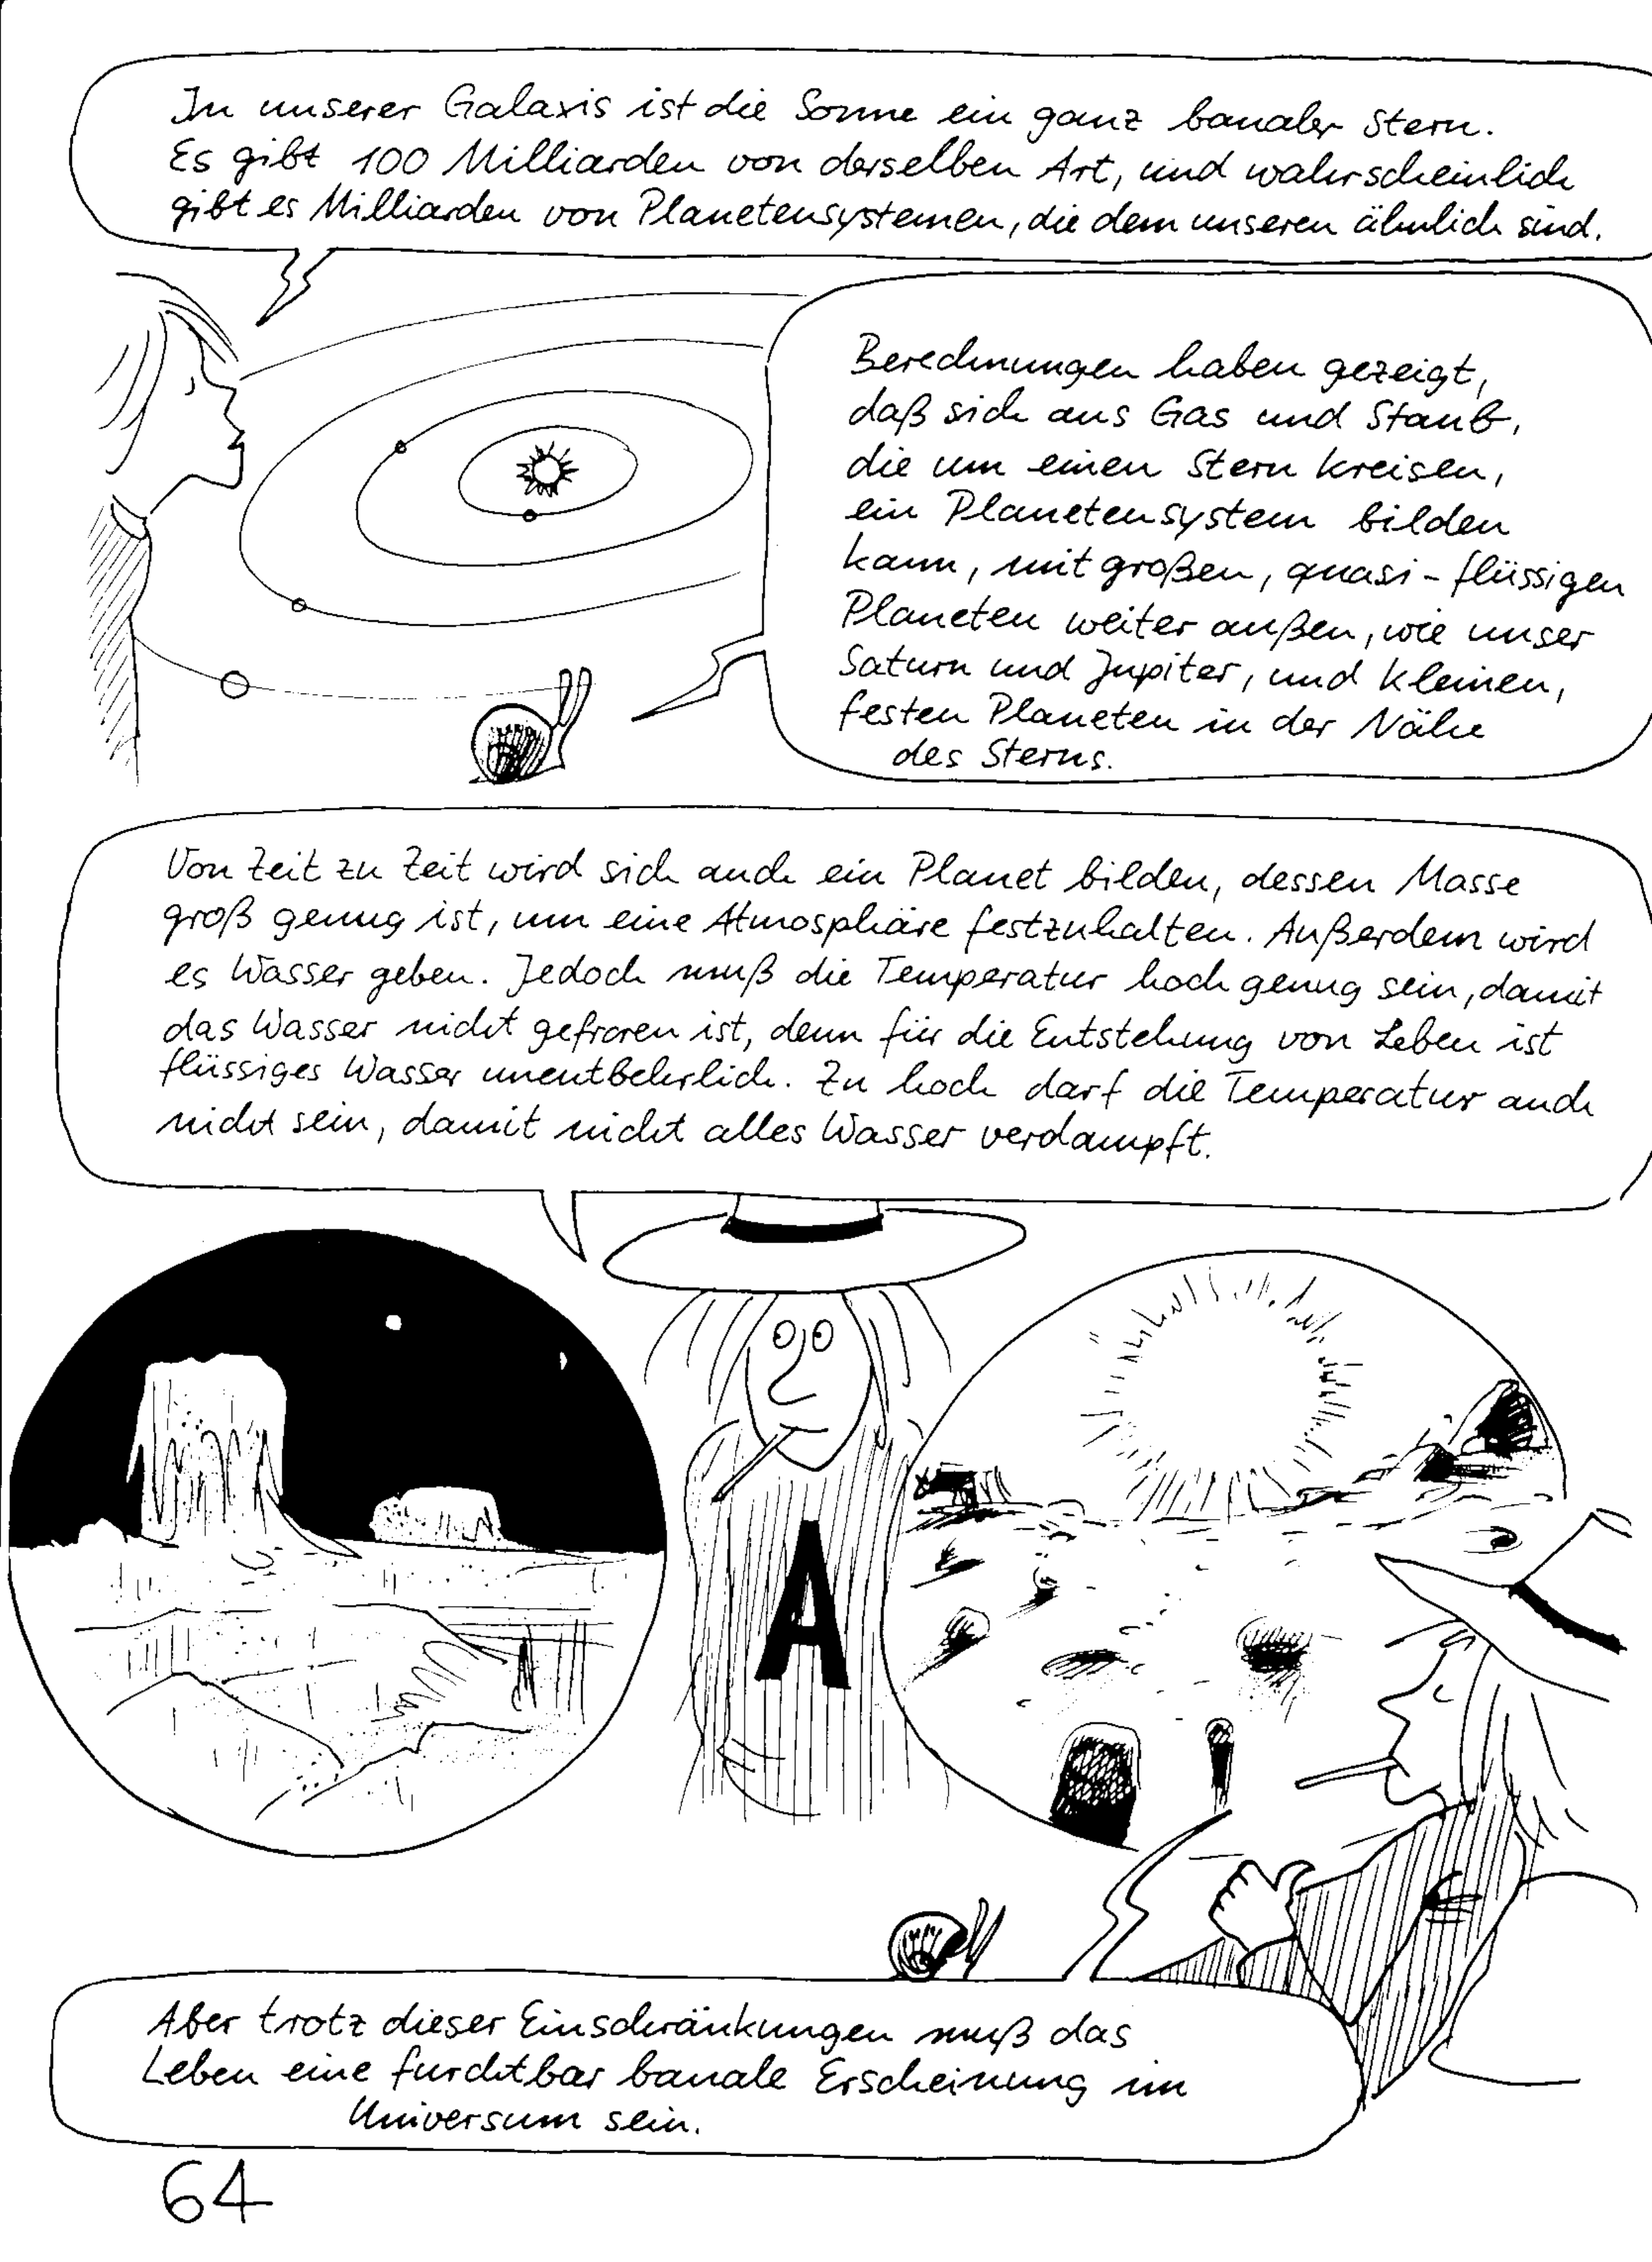 In unserer Galaxis ist die Sonne ein ganz banaler Stern.
Es gibt 100 Milliarden von derselben Art, und wahrscheinlich
gibt es Milliarden von Planetensystemen, die dem unseren ähnlich sind.
Berechnungen haben gezeigt,
daß sich aus Gas und Staub,
die um einen Stern kreisen,
ein Planetensystem bilden
kann, mit großen, quasi-flüssigen
Planeten weiter außen, wie unser
Saturn und Jupiter, und kleinen,
festen Planeten in der Nähe
des Sterns.
Von Zeit zu Zeit wird sich auch ein Planet bilden, dessen Masse
groß genug ist, um eine Atmosphäre festzuhalten. Außerdem wird
es Wasser geben. Jedoch muß die Temperatur hoch genug sein, damit
das Wasser nicht gefroren ist, denn für die Entstehung von Leben ist
flüssiges Wasser unentbehrlich. Zu hoch darf die Temperatur auch
nicht sein, damit nicht alles Wasser verdampft.
A
Aber trotz dieser Einschränkungen muß das
Leben eine furchtbar banale Erscheinung im
Universum sein.
64